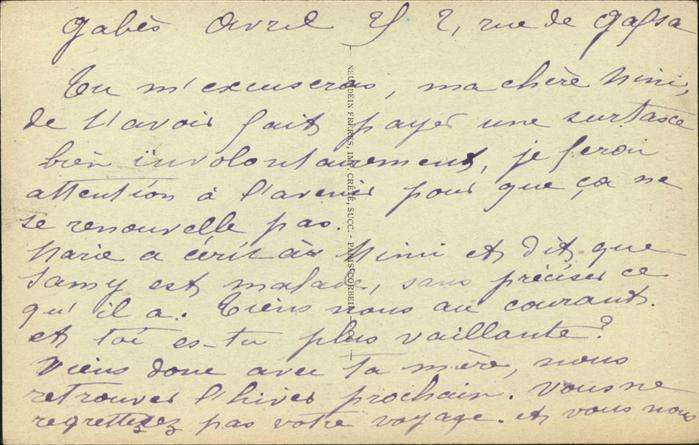 Gabès Avril 25 2, rue de Gafsa
Tu m'excuseras, ma chère Mimi,
de t'avoir fait payer une surtaxe
bien involontairement, je ferai
attention à l'avenir pour que ça ne
se renouvelle pas.
Marie a écrit à Mimi et dit que
Samy est malade, sans préciser ce
qu'il a. Tiens nous au courant.
et toi es-tu plus vaillante?
Viens donc avec ta mère, nous
retrouver l'hiver prochain. Vous ne
regretterez pas votre voyage. et vous nous
NEURDEIN FRÈRES, IMP. CRÉTÉ, SUCC. - PARIS-CORBEIL